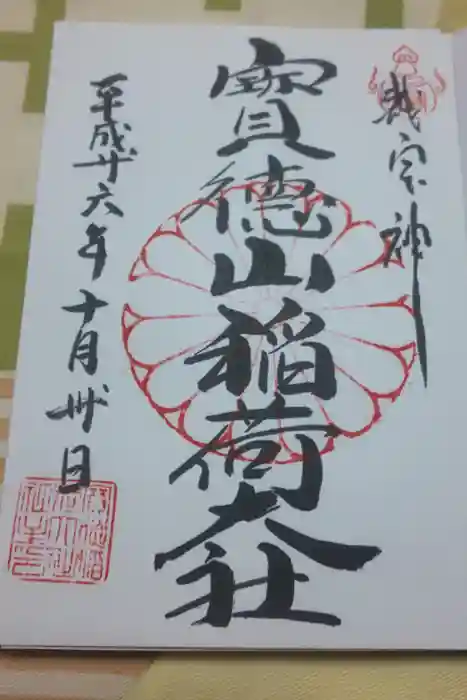 戴宗神
寳徳山稲荷大社
平成廿六年十月卅日